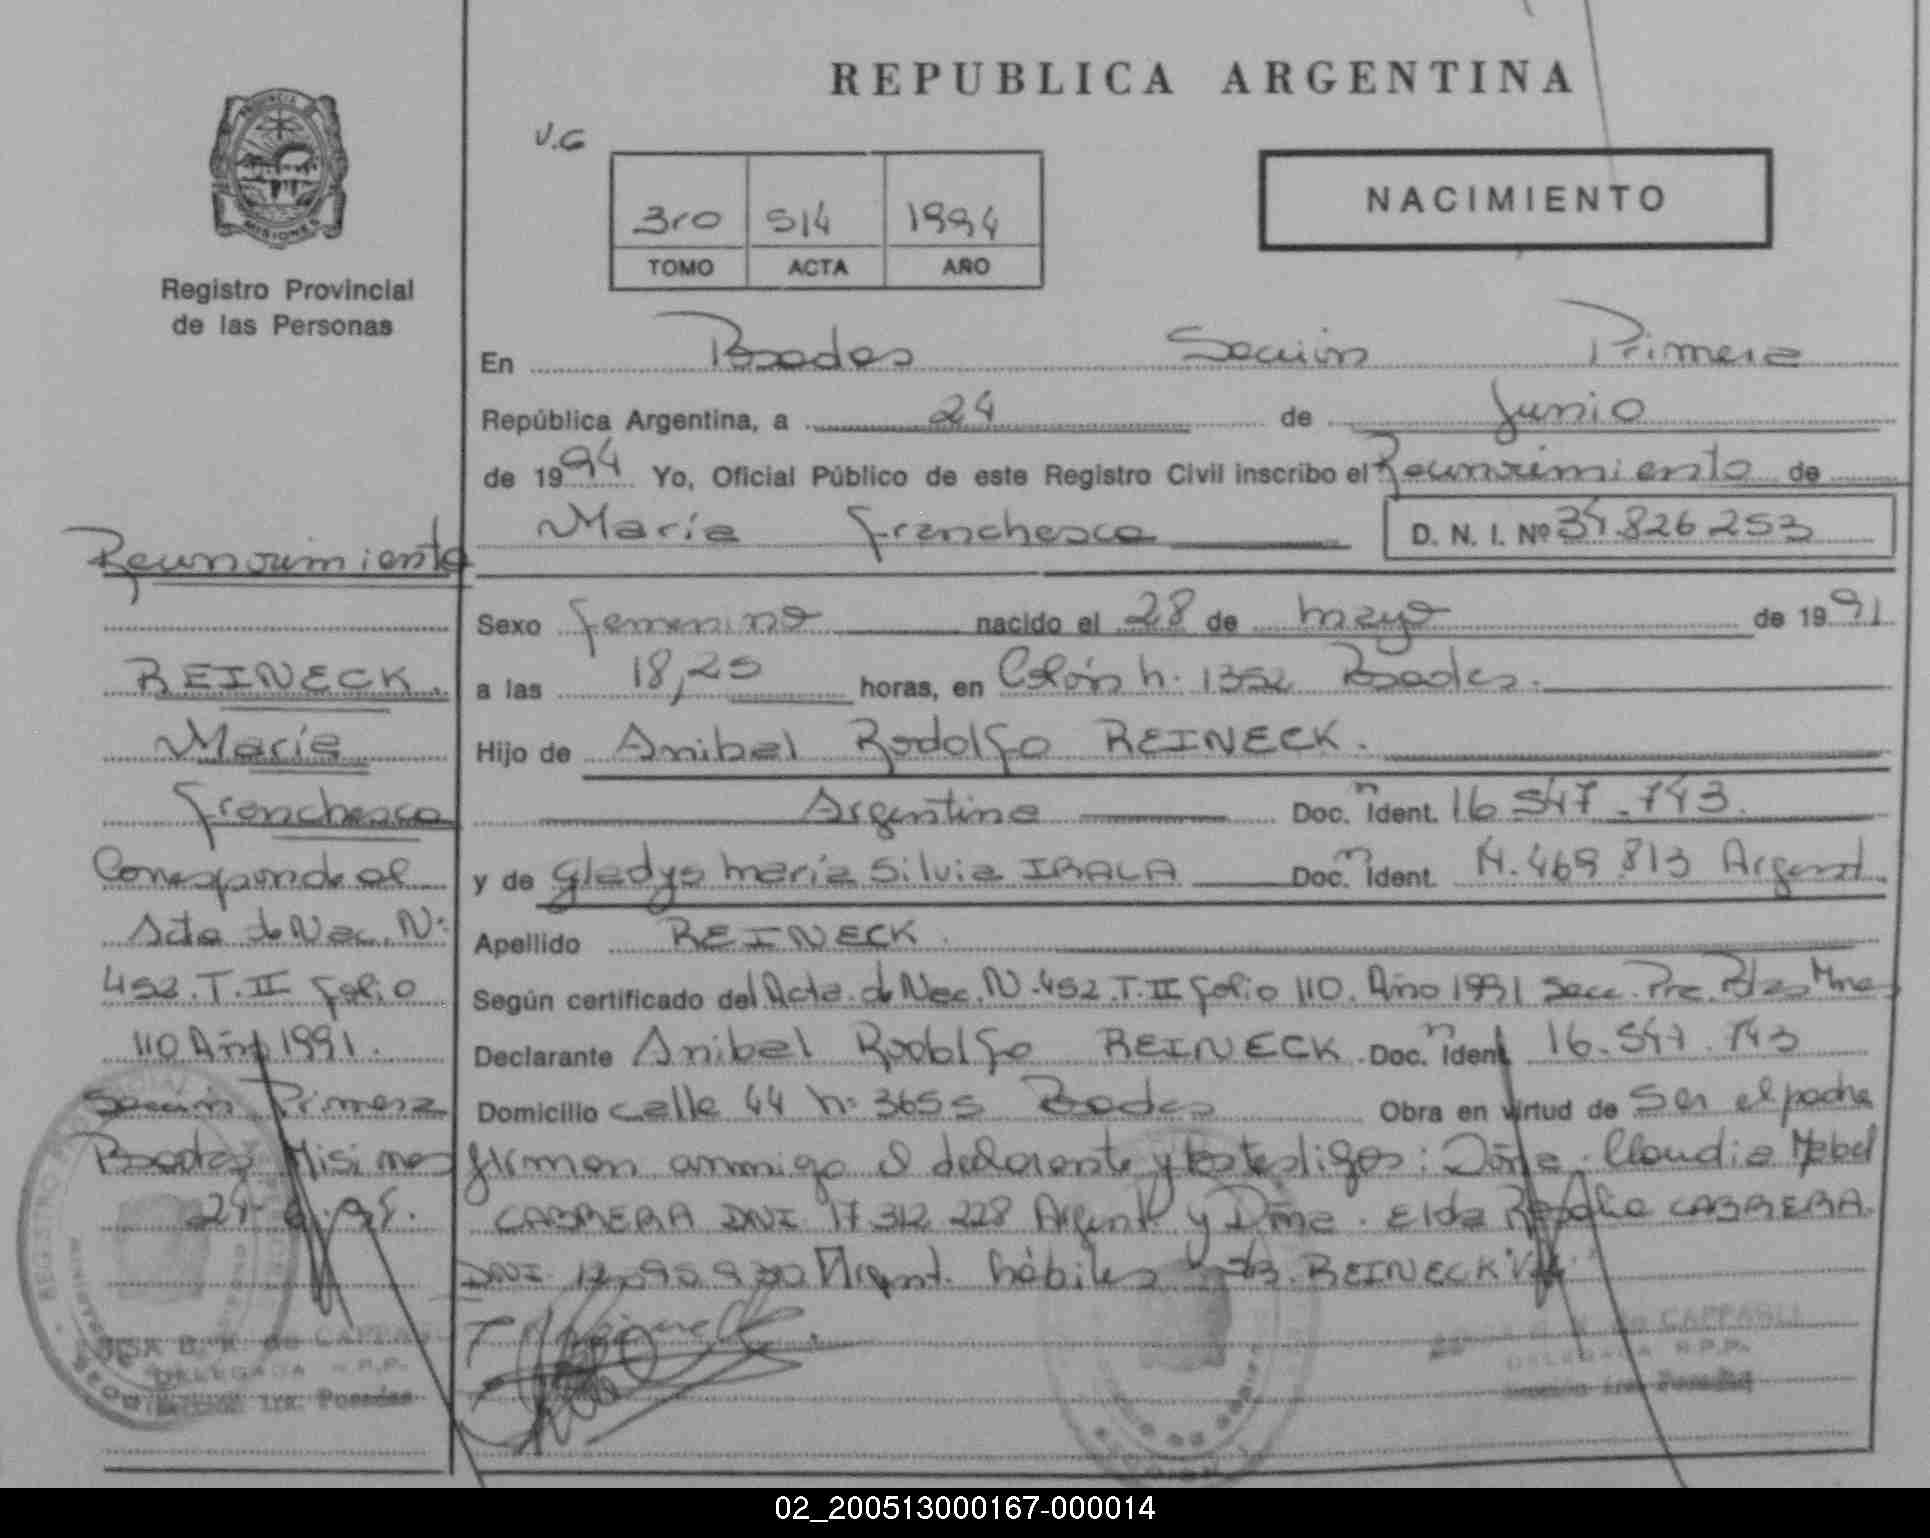 REPUBLICA ARGENTINA
PROVINCIA DE
MISIONES
Registro Provincial
de las Personas
V.G
3ro 514 1994
TOMO ACTA AÑO
NACIMIENTO
En Posadas Sección Primera
República Argentina, a 24 de Junio
de 1994 Yo, Oficial Público de este Registro Civil inscribo el Reconocimiento de
María Franchesca D. N. I. Nº 34.826 253
Sexo femenino nacido el 28 de mayo de 1991
a las 18,25 horas, en Colón n. 1352 Posadas.
Hijo de Anibal Rodolfo REINECK.
Argentina Doc.n Ident. 16 547.743.
y de Gladys María Silvia IRALA Doc.n Ident. 14.469.813 Argent.
Apellido REINECK.
Según certificado del Acta de Nac. N. 452. T. II folio 110. Año 1991 Secc. Pra. Pdas Mnes
Declarante Anibal Rodolfo REINECK. Doc.n Ident 16.547.743
Domicilio calle 44 n: 3655 Posadas Obra en virtud de Ser el padre
firman conmigo el declarante y los testigos: Doña. Claudia Mabel
CABRERA DNI 17 312 228 Argent. y Dña. Elda CABRERA.
DNI Argent. hábiles REINECK
Reconocimiento
REINECK.
María
Franchesca
Corresponde al
Acta de Nac. N:
452. T. II folio
110 Año 1991.
Sección Primera
Posadas Misiones
de CAPPASULI
DELEGADA R.P.P.
Sección 1ra. Posadas
de CAPPASULI
DELEGADA R.P.P.
Sección 1ra. Posadas
02_200513000167-000014